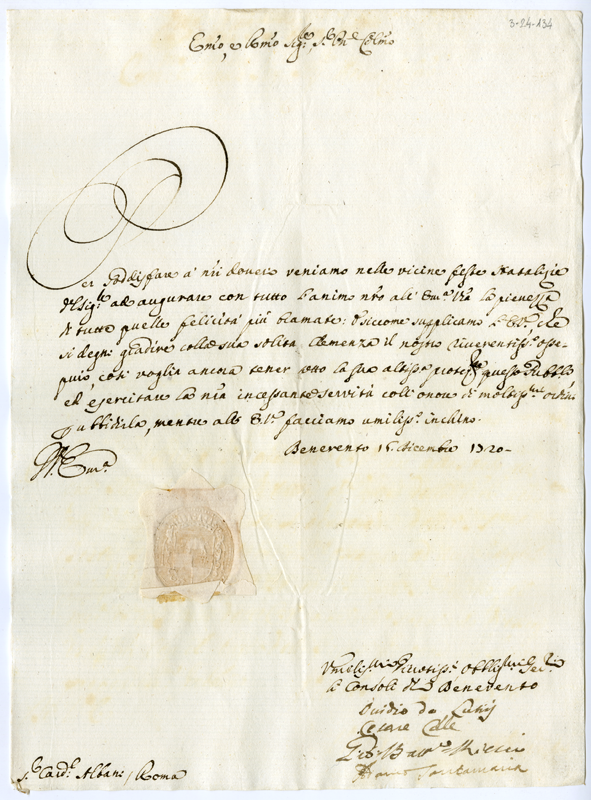 3-24-134
Emo, e Rmo Sig.re P.rone Colmo
Per soddisfare a' nri doveri veniamo nelle vicine feste Natalizie
del Sig.re ad augurare con tutto l'animo nro all' Em.a Vra la pienezza
di tutte quelle felicità più bramate: e siccome supplicamo l'E.V. che
si degni gradire colla sua solita clemenza il nostro riverentiss.o osse-
quio, così voglia ancora tener sotto la sua altissa protez.ne questo Pubblico
ed esercitare la nra incessante servitù coll' onore di moltiss.mi ordini
ubbidirla, mentre all' E.V. facciamo umiliss.o inchino.
Benevento 15 Dicembre 1720-
Di V. Em.a
Umiliss.mi Devotiss.i Obblig.mi Ser.ri
li Consoli di Benevento
Ovidio de
Cesare
Gio: Batt.a Ricci
Santamaria
S.r Card.l Albani, Roma